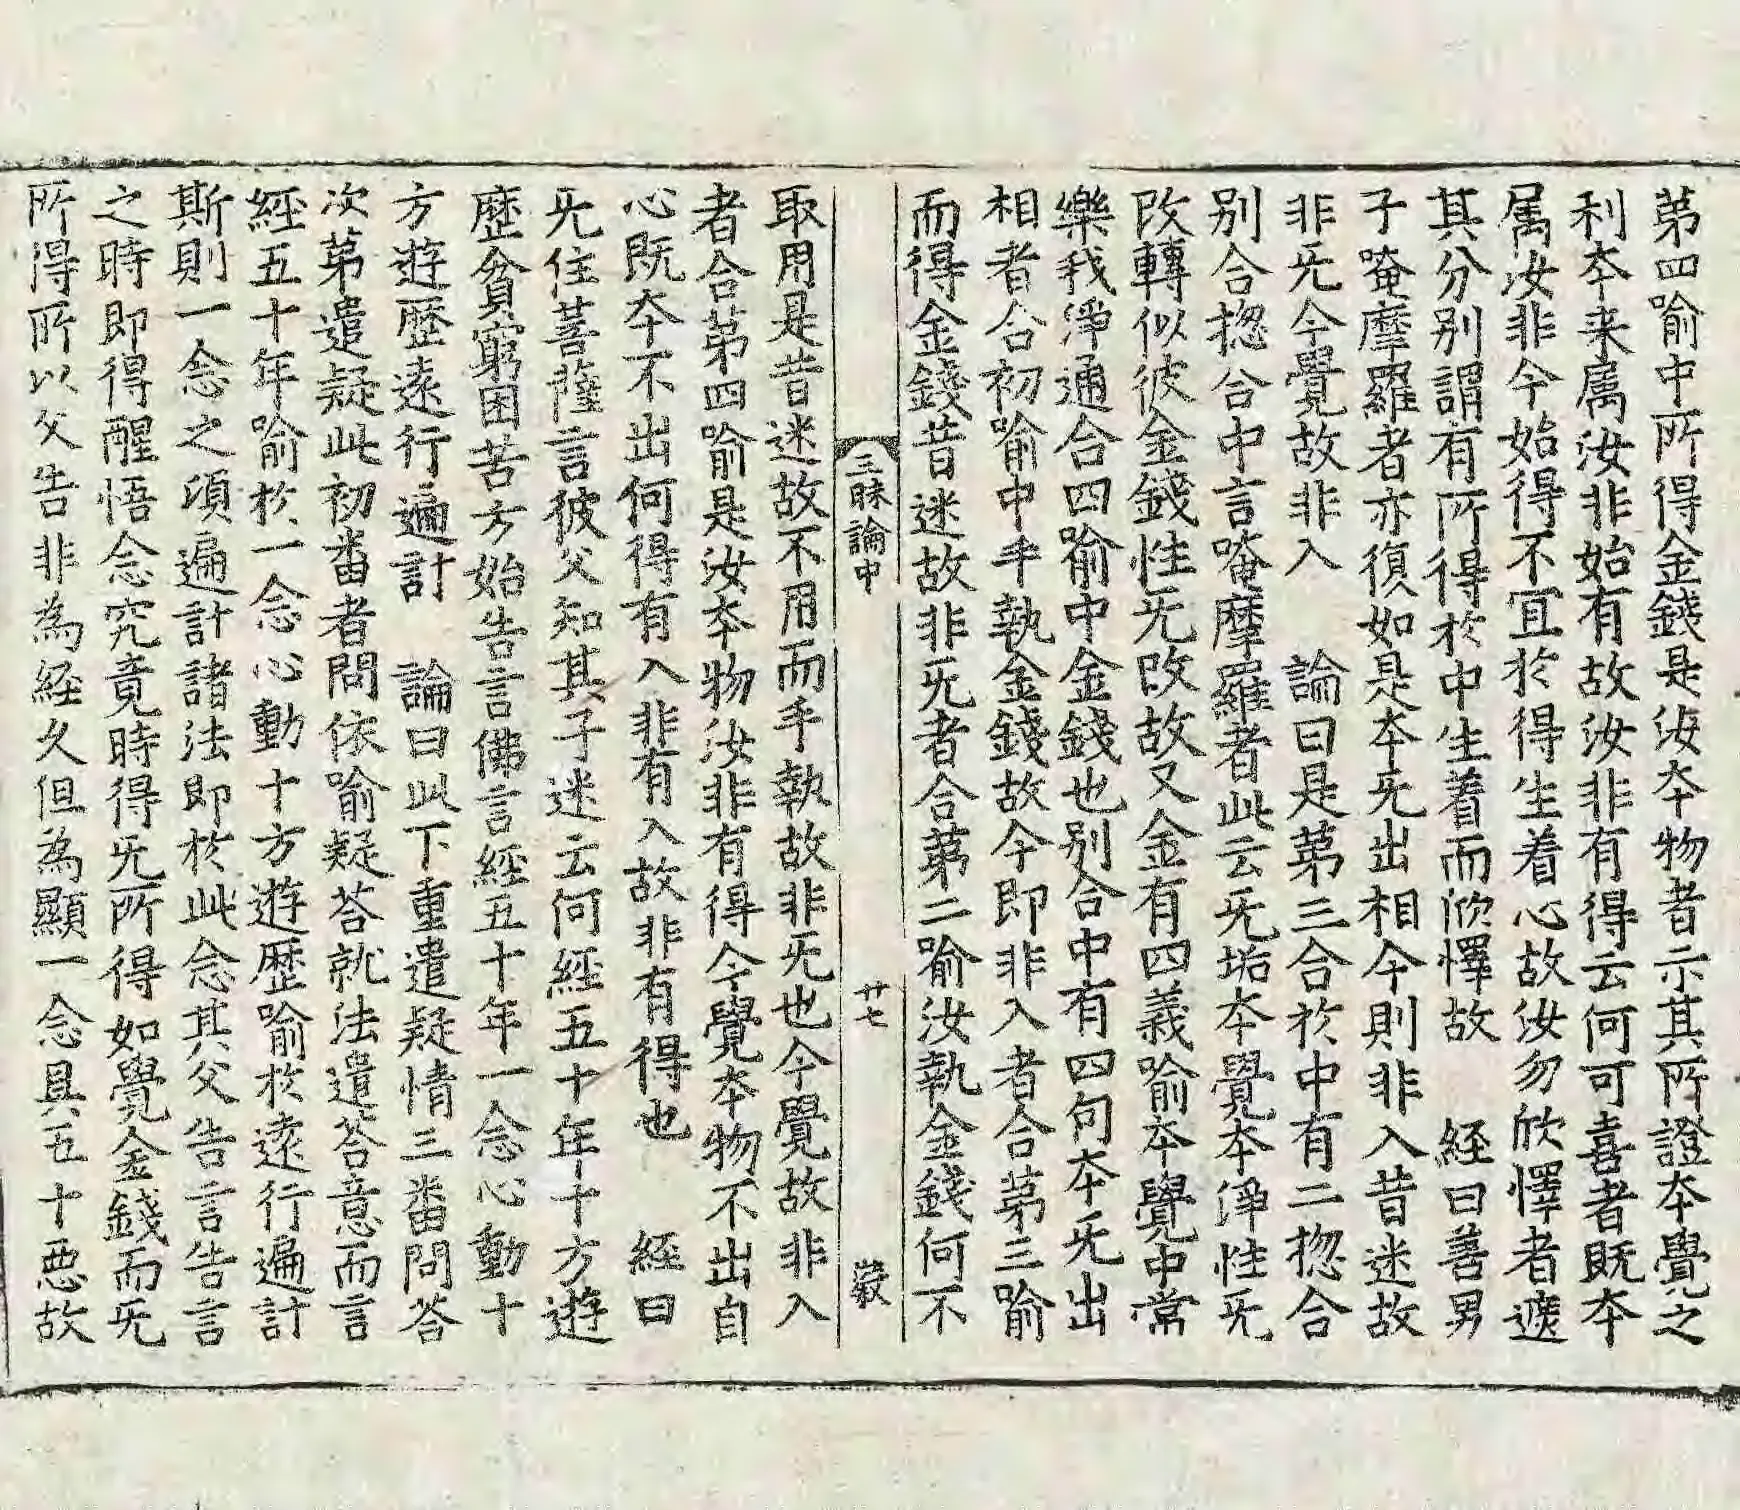 第四喻中所得金錢是汝夲物者示其所證夲覺之
利夲来属汝非始有故汝非有得云何可喜者既夲
属汝非今始得不冝於得生着心故汝勿欣懌者遮
其分别謂有所得於中生着而欣懌故　經曰善男
子唵摩羅者亦復如是夲旡出相今則非入昔迷故
非旡今覺故非入　論曰是第三合於中有二揔合
别合揔合中言唵摩羅者此云旡垢夲覺夲淨性旡
改轉似彼金錢性旡改故又金有四義喻夲覺中常
樂我淨通合四喻中金錢也别合中有四句夲旡出
相者合初喻中手執金錢故今即非入者合第三喻
而得金錢昔迷故非旡者合第二喻汝執金錢何不
三昧論中　廿七　嚴
取用是昔迷故不用而手執故非旡也今覺故非入
者合第四喻是汝夲物汝非有得今覺夲物不出自
心既夲不出何得有入非有入故非有得也　經曰
旡住菩薩言彼父知其子迷云何經五十年十方遊
歷貧窮困苦方始告言佛言經五十年一念心動十
方遊歷遠行遍計　論曰此下重遣疑情三畨問荅
次第遣疑此初畨者問依喻疑荅就法遣荅意而言
經五十年喻於一念心動十方遊歷喻於遠行遍計
斯則一念之頃遍計諸法即於此念其父告言告言
之時即得醒悟念究竟時得旡所得如覺金錢而旡
所得所以父告非為経久但為顯一念具五十惡故